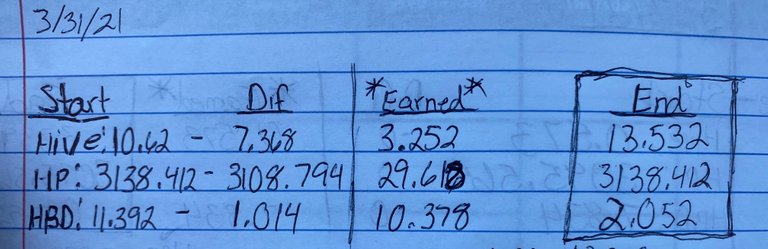 3/31/21
Start Dif *Earned* End
Hive: 10.62 - 7.368 3.252 13.532
HP: 3138.412 - 3108.794 29.618 3138.412
HBD: 11.392 - 1.014 10.378 2.052